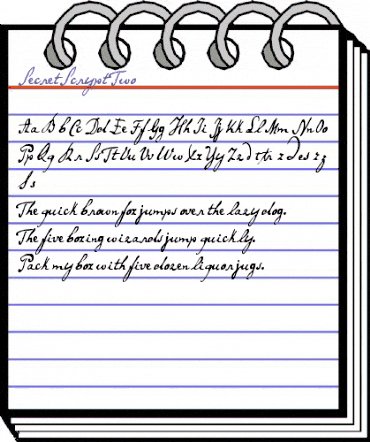 Secret Scrypt Two
Aa Bb Cc Dd Ee Ff Gg Hh Ii Jj Kk Ll Mm Nn Oo
Pp Qq Rr Ss Tt Uu Vv Ww Xx Yy Zz
The quick brown fox jumps over the lazy dog.
The five boxing wizards jump quickly.
Pack my box with five dozen liquor jugs.